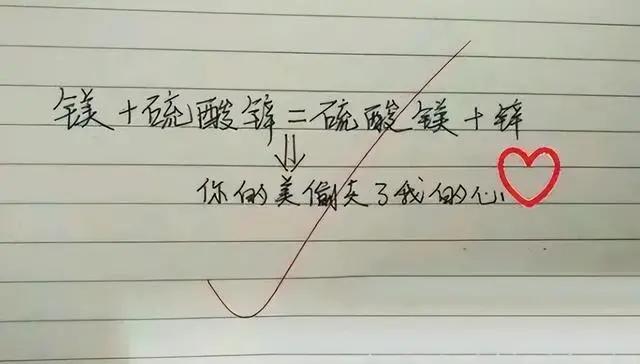 镁+硫酸锌=硫酸镁+锌
你的美偷走了我的心